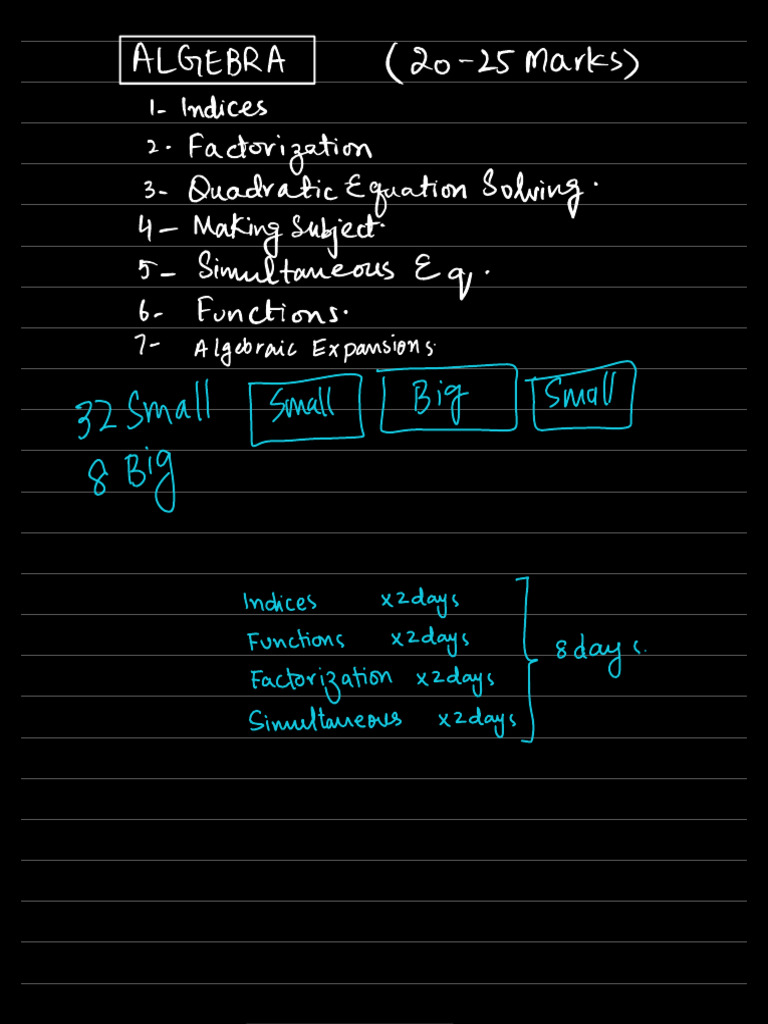 ALGEBRA (20-25 Marks)
1- Indices
2. Factorization
3- Quadratic Equation Solving.
4- Making Subject.
5- Simultaneous Eq.
6- Functions.
7- Algebraic Expansions.
32 Small Small Big Small
8 Big
Indices x2days
Functions x2days
8 days.
Factorization x2days
Simultaneous x2days